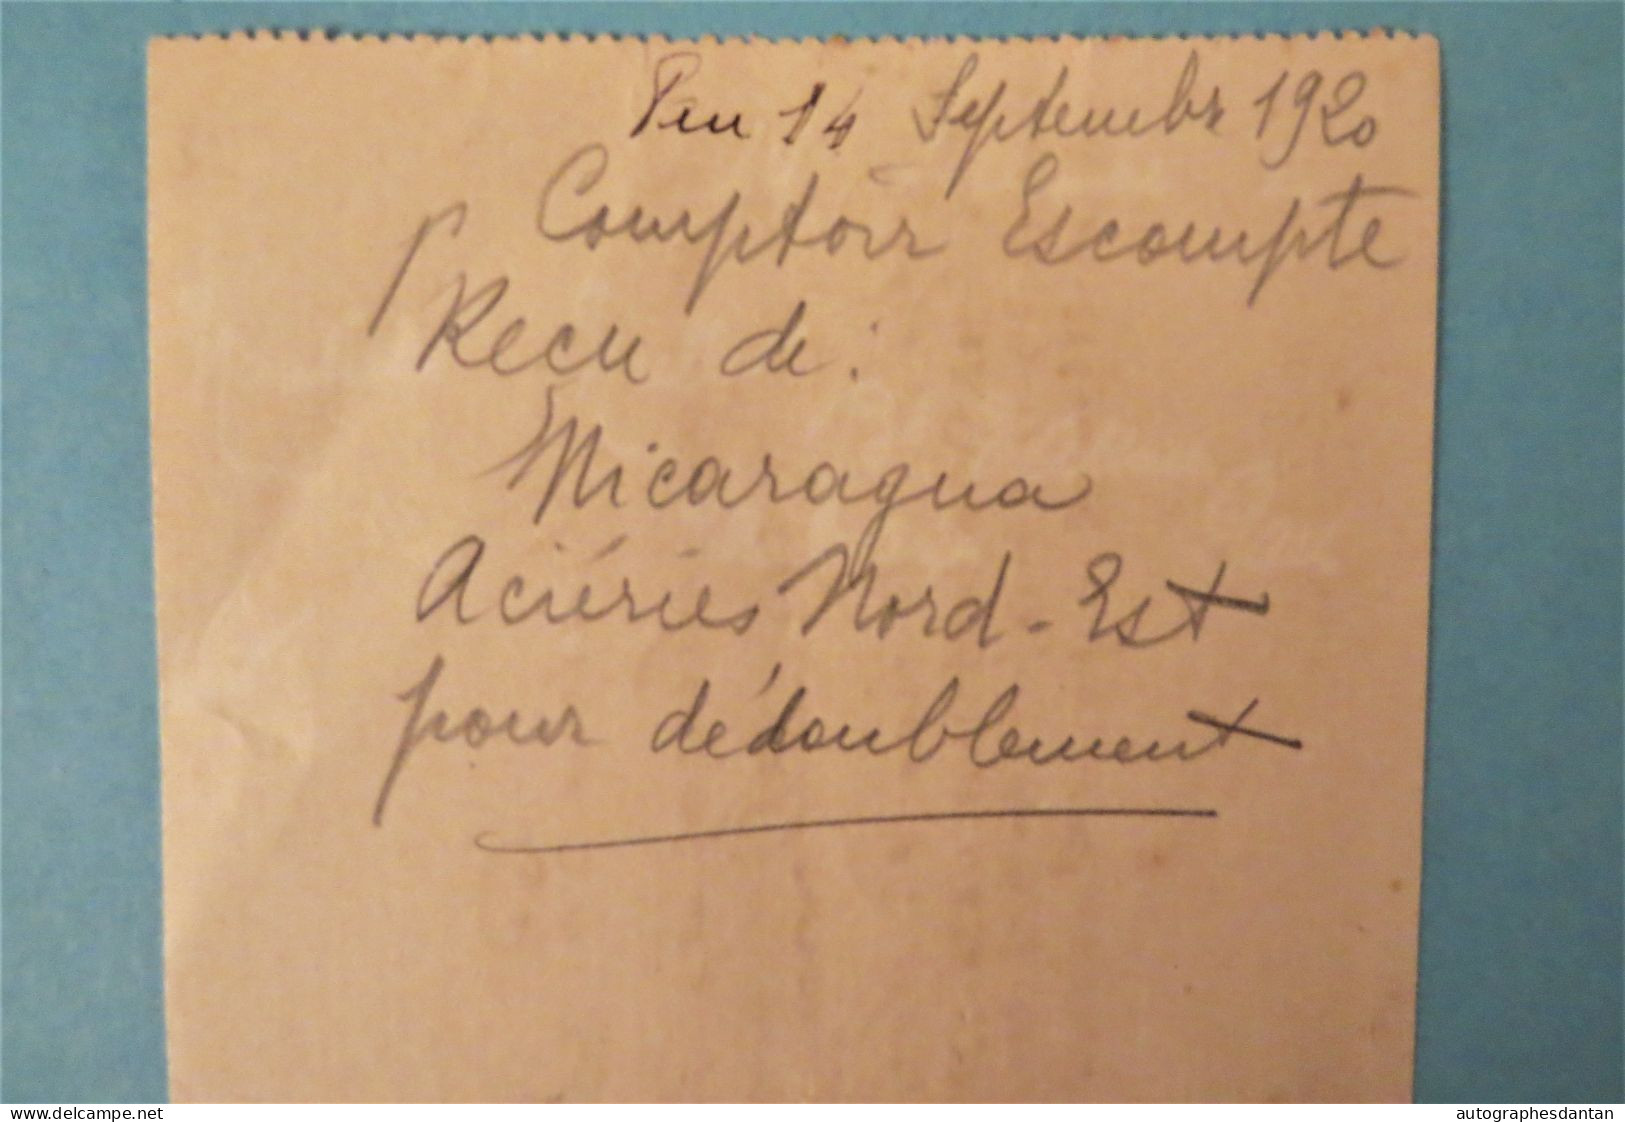 14 Septembre 1920
Comptoir Escompte
Recu de :
Nicaragua
Aciéries Nord-Est
pour dédoublement
delcampe.net
autographesdantan